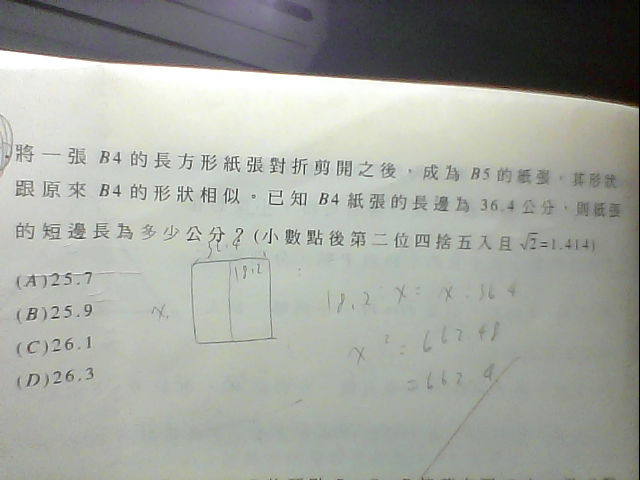 將一張 B4 的長方形紙張對折剪開之後，成為 B5 的紙張，其形狀
跟原來 B4 的形狀相似。已知 B4 紙張的長邊為 36.4 公分，則紙張
的短邊長為多少公分？(小數點後第二位四捨五入且 √2=1.414)
(A)25.7
(B)25.9
(C)26.1
(D)26.3
36.4
18.2
x
18.2 : x = x : 36.4
x² = 662.48
= 662.4